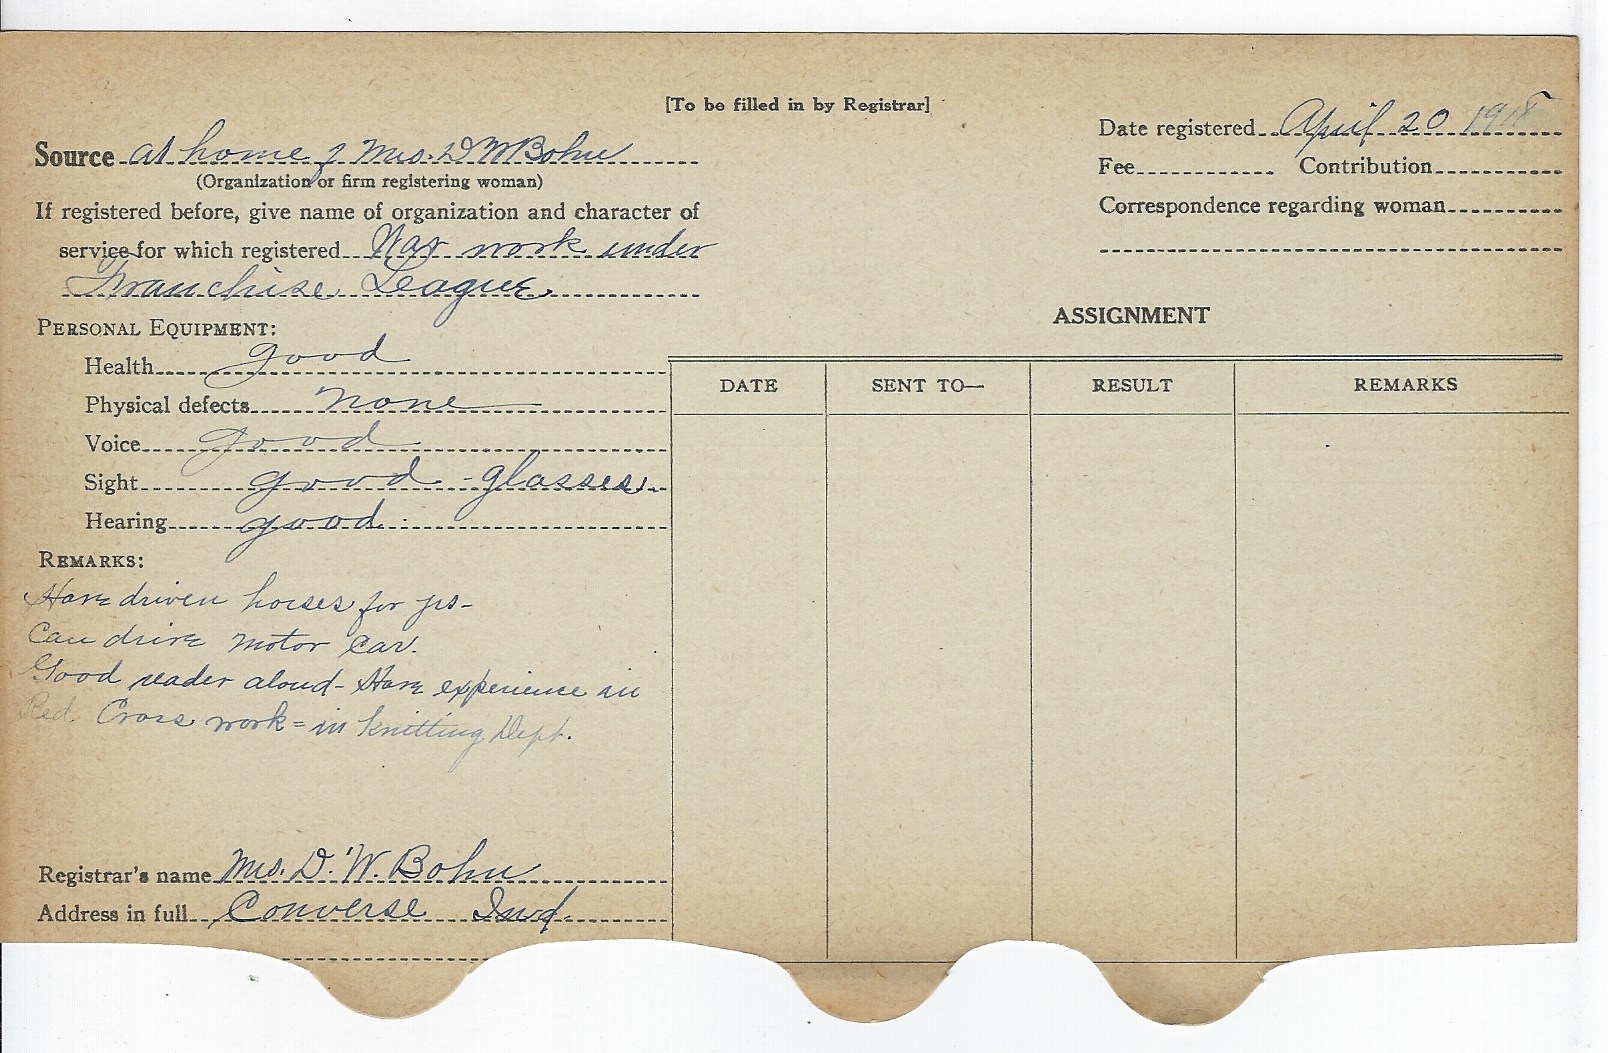 [To be filled in by Registrar]
Date registered April 20 1918
Source at home of Mrs. D W Bohn
(Organization or firm registering woman)
Fee Contribution
If registered before, give name of organization and character of
Correspondence regarding woman
service for which registered War work under
Franchise League
ASSIGNMENT
PERSONAL EQUIPMENT:
Health good
DATE SENT TO— RESULT REMARKS
Physical defects none
Voice good
Sight good - glasses
Hearing good
REMARKS:
Have driven horses for yrs-
Can drive motor car.
Good reader aloud - Have experience in
Red Cross work = in Knitting Dept.
Registrar's name Mrs. D. W. Bohn
Address in full Converse Ind.